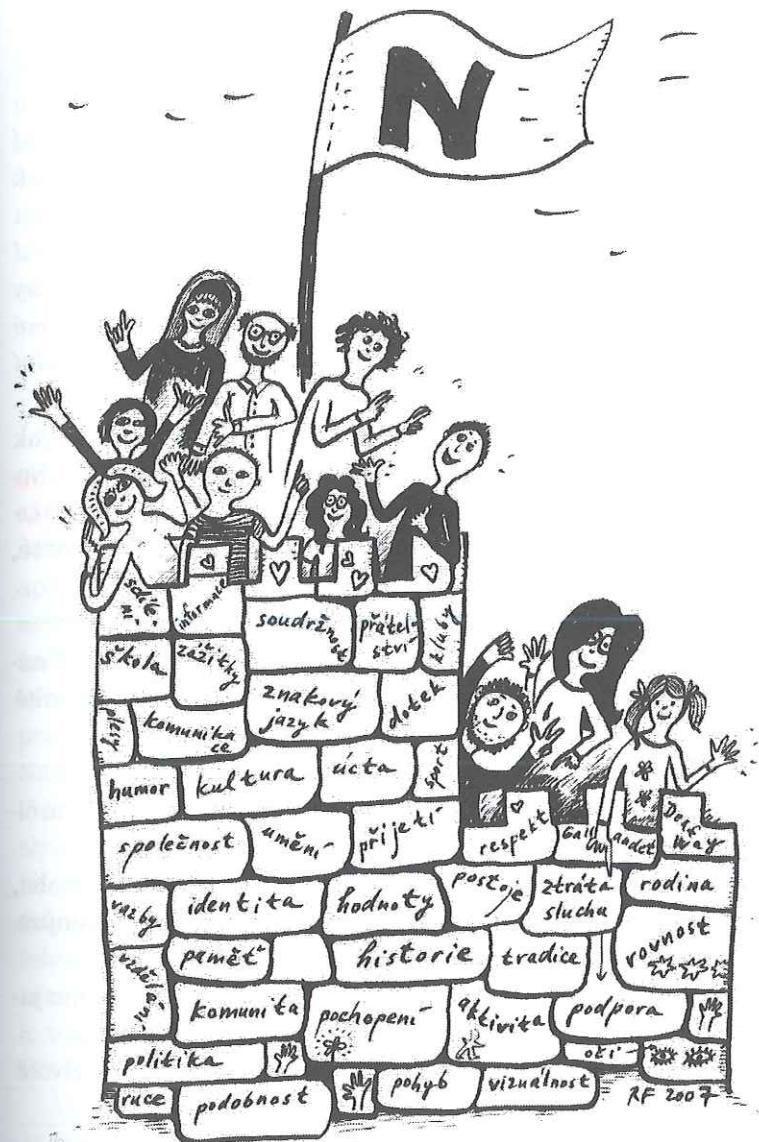 N
sdíle-
ní
informace
soudržnost
přátel-
ství
kluby
škola
zážitky
znakový
jazyk
dotek
plesy
komunika
ce
humor
kultura
úcta
sport
společnost
umění
přijetí
respekt
Gallaudet
Deaf
Way
vazby
identita
hodnoty
postoje
ztráta
sluchu
rodina
vzdělá-
ní
paměť
historie
tradice
rovnost
komunita
pochopení
aktivita
podpora
politika
oči
ruce
podobnost
pohyb
vizuálnost
RF 2007